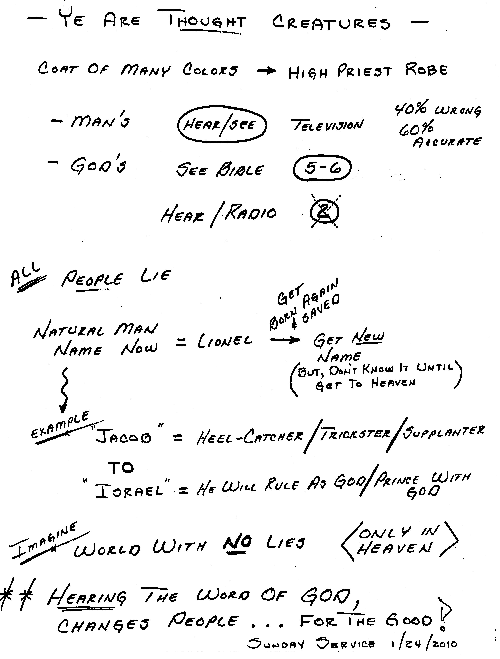 — YE ARE THOUGHT CREATURES —
COAT OF MANY COLORS → HIGH PRIEST ROBE
– MAN'S HEAR/SEE TELEVISION 40% WRONG
60% ACCURATE
– GOD'S SEE BIBLE 5-6
HEAR/RADIO 8
ALL PEOPLE LIE
GET BORN AGAIN & SAVED
NATURAL MAN
NAME NOW = LIONEL → GET NEW
NAME
(BUT, DON'T KNOW IT UNTIL
GET TO HEAVEN)
EXAMPLE
"JACOB" = HEEL-CATCHER/TRICKSTER/SUPPLANTER
TO
"ISRAEL" = HE WILL RULE AS GOD/PRINCE WITH
GOD
IMAGINE WORLD WITH NO LIES <ONLY IN
HEAVEN>
** HEARING THE WORD OF GOD,
CHANGES PEOPLE ... FOR THE GOOD!
SUNDAY SERVICE 1/24/2010